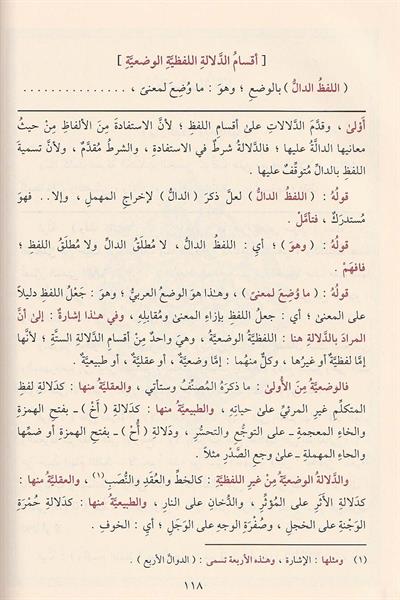 [ أقسامُ الدَّلالةِ اللفظيَّةِ الوضعيَّةِ ]
( اللفظُ الدالُّ ) بالوضعِ ؛ وهوَ : ما وُضِعَ لمعنىً ، . . . . . . . . . . . . . .
أَوْلىٰ ، وقدَّمَ الدَّلالاتِ على أقسامِ اللفظِ ؛ لأنَّ الاستفادةَ مِنَ الألفاظِ مِنْ حيثُ
معانيها الدالَّةُ عليها ، فالدَّلالةُ شرطٌ في الاستفادةِ ، والشرطُ مُقدَّمٌ ، ولأنَّ تسميةَ
اللفظِ بالدالِّ مُتوقِّفٌ عليها .
قولُهُ : ( اللفظُ الدالُّ ) لعلَّ ذكرَ ( الدالُّ ) لإخراجِ المهملِ ، وإلا.. فهوَ
مُستدرَكٌ ، فتأمَّلْ .
قولُهُ : ( وهوَ ) ؛ أي : اللفظُ الدالُّ ، لا مُطلَقُ الدالِّ ولا مُطلَقُ اللفظِ ؛
فافهَمْ .
قولُهُ : ( ما وُضِعَ لمعنىً ) ، وهٰذا هوَ الوضعُ العربيُّ ؛ وهوَ : جَعْلُ اللفظِ دليلاً
على المعنىٰ ؛ أي : جعلُ اللفظِ بإزاءِ المعنىٰ ومُقابلِهِ ، وفي هٰذا إشارةٌ : إلىٰ أنَّ
المرادَ بالدَّلالةِ هنا : اللفظيَّةُ الوضعيَّةُ ، وهيَ واحدٌ مِنْ أقسامِ الدَّلالةِ الستَّةِ ؛ لأنَّها
إمَّا لفظيَّةٌ أو غيرُها ، وكلٌّ منهُما : إمَّا وضعيَّةٌ ، أو عقليَّةٌ ، أو طبيعيَّةٌ .
فالوضعيَّةُ مِنَ الأُولىٰ : ما ذكرَهُ المُصنِّفُ وستأتي ، والعقليَّةُ منها : كدَلالةِ لفظِ
المتكلِّمِ غيرِ المرئيِّ علىٰ حياتِهِ ، والطبيعيَّةُ منها : كدَلالةِ ( أَخْ ) ـ بفتحِ الهمزةِ
والخاءِ المعجمةِ ـ على التوجُّعِ والتحسُّرِ ، ودَلالةِ ( أُحْ ) ـ بفتحِ الهمزةِ أو ضمِّها
والحاءِ المهملةِ ـ علىٰ وجعِ الصَّدْرِ مثلاً .
والدَّلالةُ الوضعيَّةُ مِنْ غيرِ اللفظيَّةِ : كالخطِّ والعُقَدِ والنُّصَبِ(١) ، والعقليَّةُ منها :
كدَلالةِ الأثَرِ على المُؤثِّرِ ، والدُّخَانِ على النارِ ، والطبيعيَّةُ منها : كدَلالةِ حُمْرَةِ
الوَجْنةِ على الخجلِ ، وصُفْرَةِ الوجهِ على الوَجَلِ ؛ أي : الخوفِ .
(١) ومثلها : الإشارة ، وهٰذه الأربعة تسمى : ( الدوالَّ الأربع ) .
١١٨